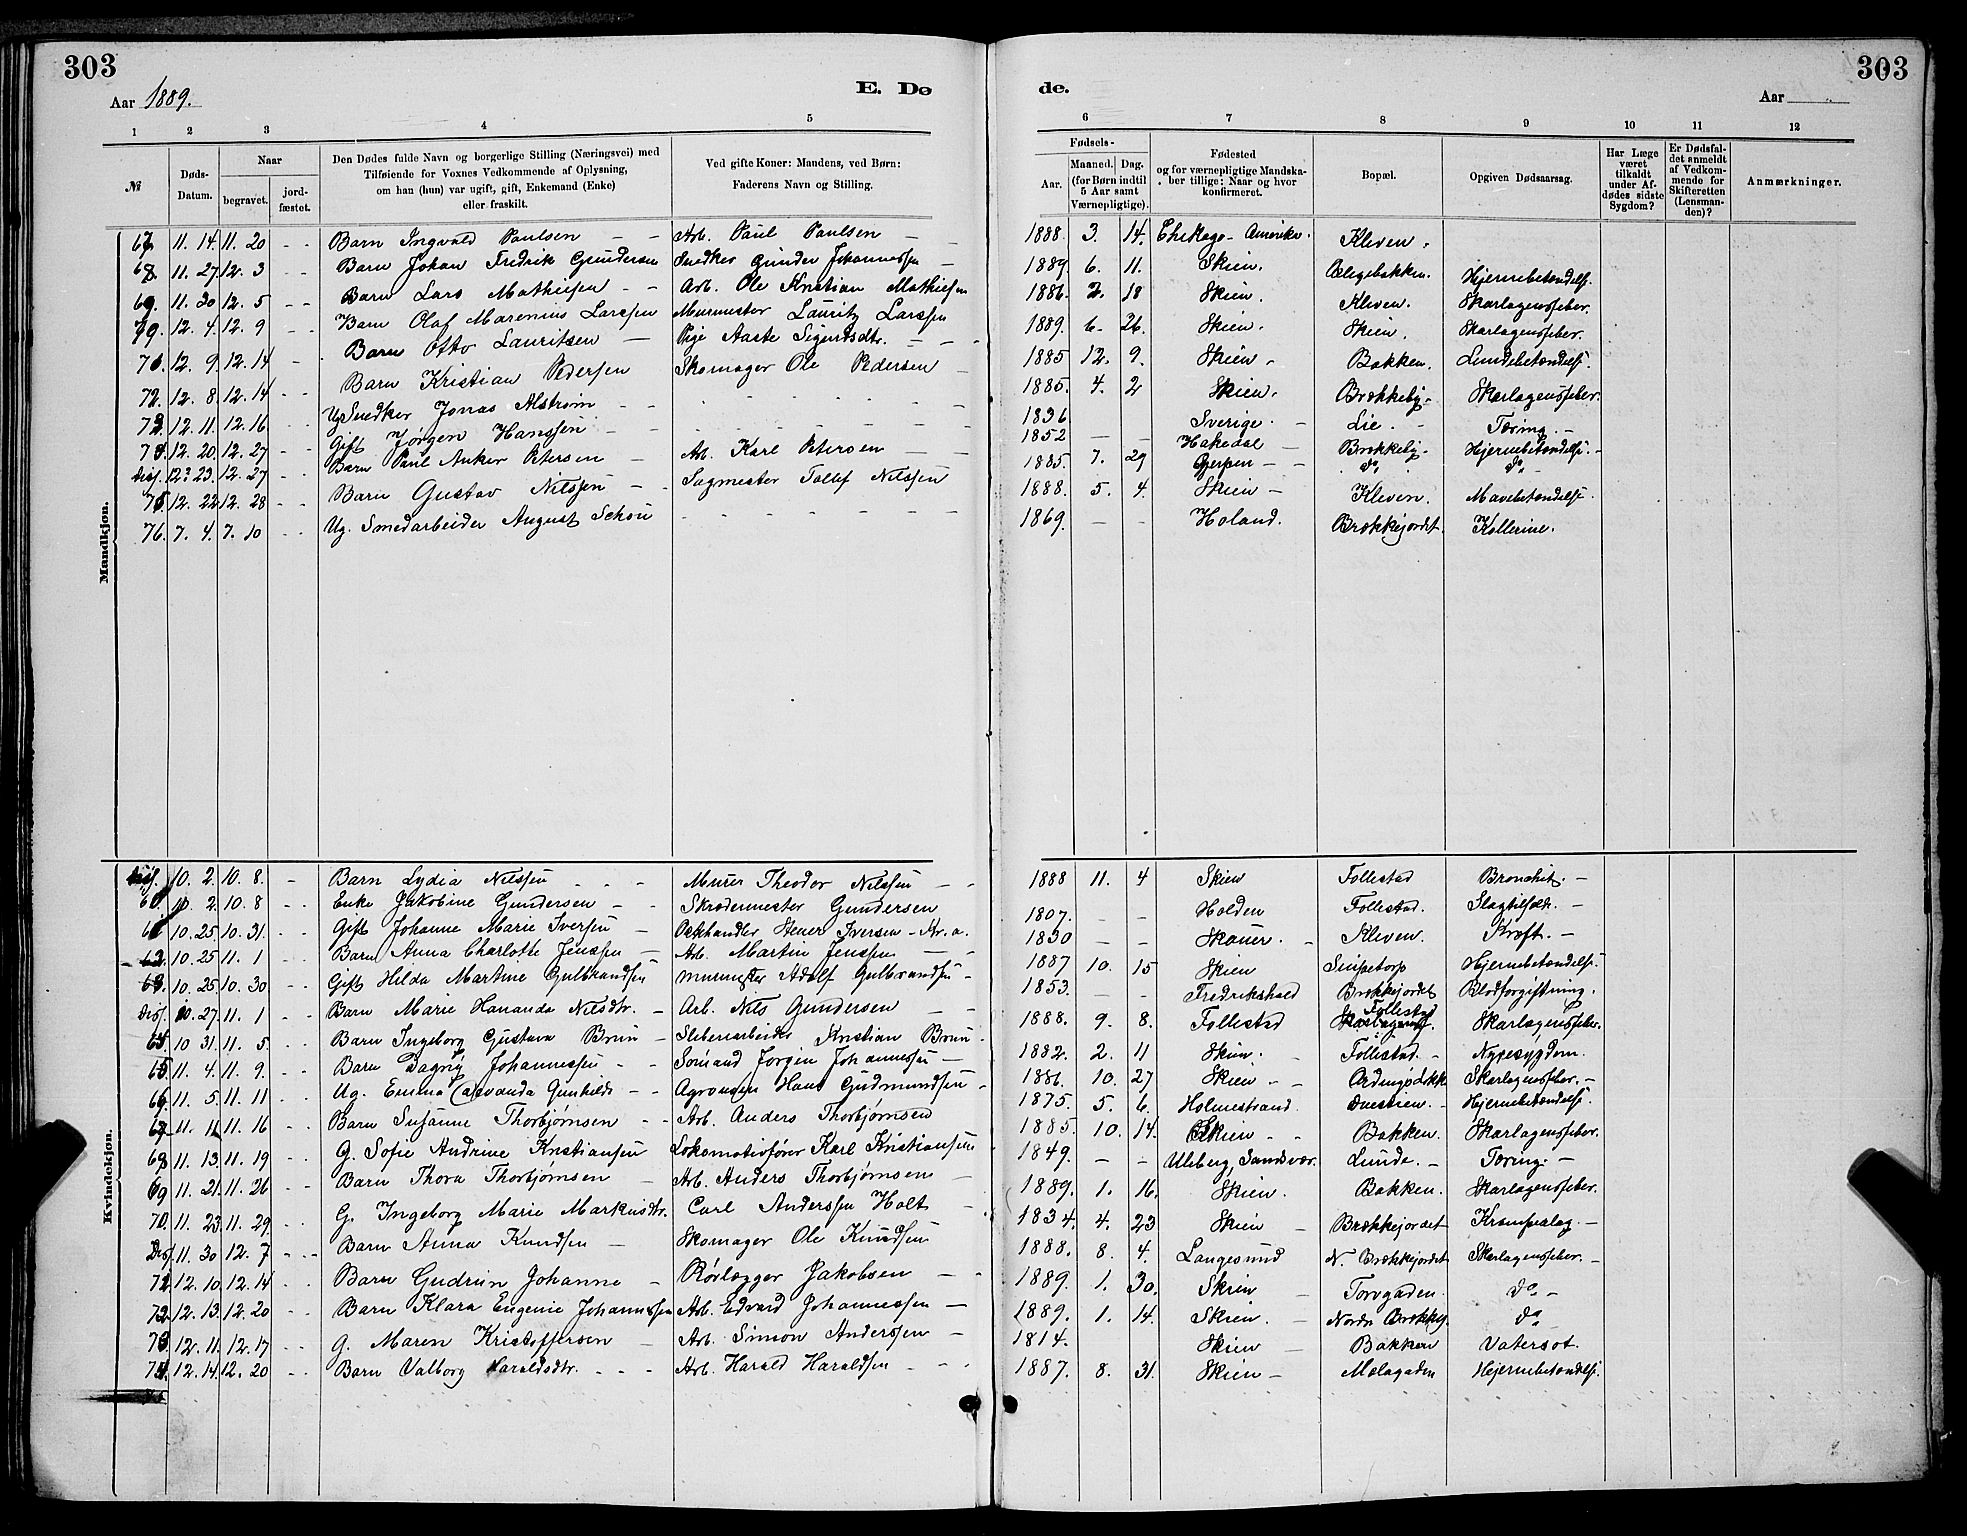 303
303
Aar 1889.
E. Dø
de.
Aar
1 2 3 4 5 6 7 8 9 10 11 12
№
Døds-Datum.
Naar
begravet.
jordfæstet.
Den Dødes fulde Navn og borgerlige Stilling (Næringsvei) med
Tilføiende for Voxnes Vedkommende af Oplysning,
om han (hun) var ugift, gift, Enkemand (Enke)
eller fraskilt.
Ved gifte Koner: Mandens, ved Børn:
Faderens Navn og Stilling.
Fødsels-
Aar.
Maaned. Dag.
(for Børn indtil
5 Aar samt
Værnepligtige).
Fødested
og for værnepligtige Mandskaber tillige: Naar og hvor
konfirmeret.
Bopæl.
Opgiven Dødsaarsag.
Har Læge været tilkaldt under Afdødes sidste Sygdom?
Er Dødsfaldet anmeldt af Vedkommende for Skifteretten (Lensmanden)?
Anmærkninger.
Mandkjøn.
67. 11. 14. 11. 20 - - Barn Ingvald Paulsen - - Arb. Paul Paulsen - 1888. 3. 14. Chikago - Amerika. Kleven.
68. 11. 27. 12. 3 - - Barn Johan Fredrik Gundersen Snedker Gunder Johannessen - 1889. 6. 11. Skien. Hjernebetændelse.
69. 11. 30 12. 5 - - Barn Lars Mathiesen - - Arb. Ole Kristian Mathiesen 1886. 2. 18 Skien. Kleven. Skarlagensfeber.
70. 12. 4. 12. 9 - - Barn Olaf Marenius Larssen Murmester Lauritz Larssen 1889. 6. 26. Skien. Skien. Skarlagensfeber.
71. 12. 9. 12. 14 - Barn Otto Lauritsen - Pige Aaste Sigurdsdtr. - 1885 12. 9. Skien. Bakken. Lundebetændelse.
72. 12. 8. 12. 14 - - Barn Kristian Pedersen Skomager Ole Pedersen - 1885. 4. 2 Skien. Brækkeby. Skarlagensfeber.
73. 12. 11. 12. 16 - - Ug Snedker Jonas Alstrøm - - 1836 Sverige. - Lie. - Tæring. -
74. 12. 20. 12. 27 - - Gift Jørgen Hanssen - - 1852 - - Hakedal - Brækkeby. Hjernebetændelse. -
Dis. 12. 23. 12. 27 - - Barn Paul Anker Petersen - Arb. Karl Petersen - - 1885. 7. 29 Gjerpen - - do do
75. 12. 22. 12. 28 - - Barn Gustav Nilssen - - Sagmester Tollef Nilssen 1888. 5. 4. Skien - Kleven. Mavebetændelse.
76. 7. 4. 7. 10 - - Ug. Smedarbeider August Schou - - 1869. - - Holand. Brækkejordet. Kollerine.
Kvindekjøn.
Dis. 10. 2. 10. 8. - Barn Lydia Nilssen - - Murer Theodor Nilssen - - 1888 11. 4 Skien Follestad Bronchit. -
60. 10. 2. 10. 8 - Enke Jakobine Gundersen - - Skrædermester Gundersen 1807. - - Holden Follestad. Slagtilfælde. -
61. 10. 25. 10. 31. - - Gift Johanne Marie Iversen - Iversen - 1830 - - Kleven. Kræft. -
62. 10. 25 11. 1 - - Barn Anna Charlotte Jenssen - Arb. Martin Jenssen - 1887 10. 15 Skien Snipetorp Hjernebetændelse.
63. 10. 25 10. 30 - - Gift Hilda Martine Gulbrandsen Murmester Adolf Gulbrandsen - 1853. - - Fredrikshald Brækkejordet Blodforgiftning.
Dis. 10. 27. 11. 1 - - Barn Marie Hananda Nilsdtr. - Arb. Nils Gundersen - - 1888. 9. 8. Follestad Follestad Skarlagensfeber.
64. 10 31. 11. 5. - - Barn Ingeborg Gustava Bruun - Sliberiarbeider Kristian Bruun. 1882. 2. 11 Skien. Follestad. - Nyresygdom.
65 11. 4. 11. 9. - - Barn Dagny Johannessen - - Sømand Jørgen Johannessen - 1886. 10. 27 Skien - - Skarlagensfeber. -
66. 11. 5. 11. 11 - - Ug. Emma Gunhilds - - Agronom Hans Gudmundsen - 1875. 5. 6. Holmestrand. Duestien. - Hjernebetændelse.
67. 11. 11. 11. 16 - - Barn Susanne Thorbjørnsen - - Arb. Anders Thorbjørnsen 1885. 10. 14. Skien - - Bakken. Skarlagensfeber.
68 11. 13. 11. 19 - - G. Sofie Andrine Kristiansen Lokomotivfører Karl Kristiansen 1849. - - Ulleberg, Sandsvær. Lunde. - Tæring. -
69 11. 21. 11. 26 - - Barn Thora Thorbjørnsen - Arb. Anders Thorbjørnsen - 1889. 1. 16. Skien. Bakken. Skarlagensfeber.
70. 11. 23. 11. 29. - - G. Ingeborg Marie Markusdtr. Carl Anderssen Holt - 1834. 4. 23 Skien - Brækkejordet Krampeslag. -
Dis. 11. 30 12. 7 - - Barn Anna Knudsen - Skomager Ole Knudsen 1888. 8. 4. Langesund N. Brækkejordet Skarlagensfeber. -
71 12. 10. 12. 14 - - Barn Gudrun Johanne - Rørlægger Jakobsen - 1889. 1. 30. Skien - Torvgaden. do -
72 12. 13. 12. 20 - - Barn Klara Eugenie Johannessen Arb. Edvard Johannessen - 1889. 1. 14. Skien. - Nordre Brækkeby. do
73 12. 11. 12. 17 - - G. Maren Kristoffersen - Arb. Simon Anderssen - 1814. Skien - Bakken Vatersot. -
74. 12. 14. 12. 20 - - Barn Valborg Haraldsdtr. - - Arb. Harald Haraldsen - - 1887. 8. 31. Skien - Mælagaden Hjernebetændelse.